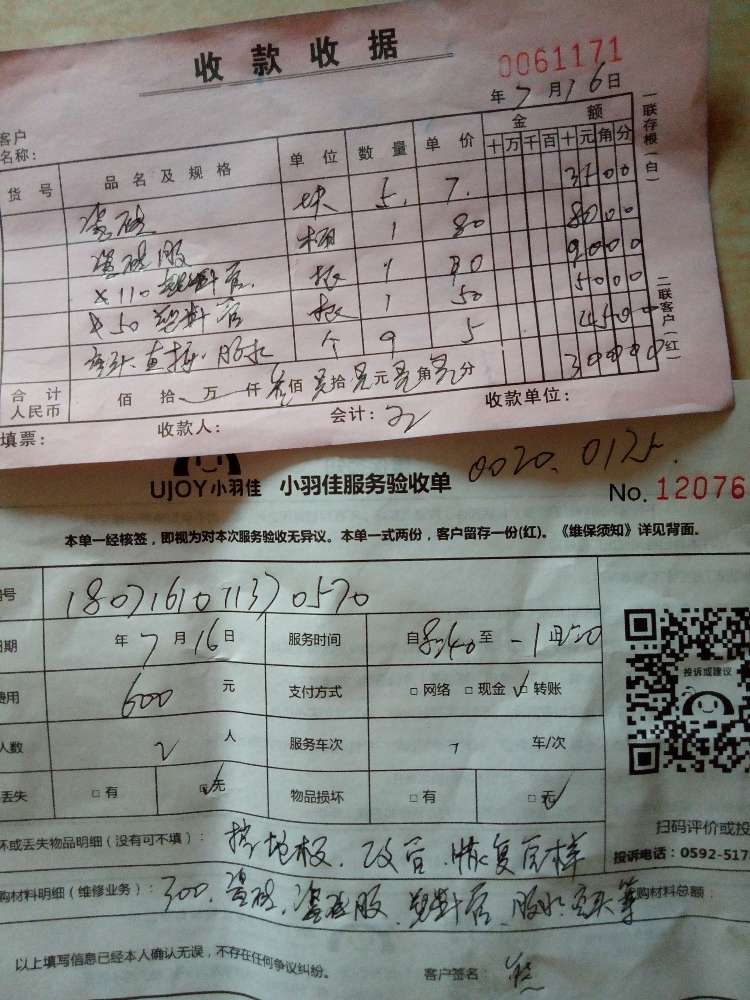 收款收据
0061171
年7月16日
客户
名称：
货号 品名及规格 单位 数量 单价 金额
十万千百十元角分
瓷砖 块 5. 7. 3500
瓷砖胶 桶 1 80 8000
×110塑料管 根 1 90 9000
×50塑料管 根 1 50 5000
弯头.直接.胶水 个 9 5 4500
合计人民币 佰拾万仟叁佰零拾零元零角零分 30000
填票： 收款人： 会计： 收款单位：
一联存根（白）
二联客户（红）
UJOY小羽佳 小羽佳服务验收单
0020.0125.
No.12076
本单一经核签，即视为对本次服务验收无异议。本单一式两份，客户留存一份(红)。《维保须知》详见背面。
编号 180716107137 0570
日期 年7月16日 服务时间 自8:40至
费用 600元 支付方式 □网络 □现金 ☑转账
人数 2人 服务车次 车/次
丢失 □有 ☑无 物品损坏 □有 ☑无
坏或丢失物品明细（没有可不填）： 挖地板、改管、恢复原样
购材料明细（维修业务）： 300、瓷砖、瓷砖胶、塑料管、胶水、弯头等 购材料总额：
投诉或建议
扫码评价或投
投诉电话：0592-517
以上填写信息已经本人确认无误，不存在任何争议纠纷。
客户签名：